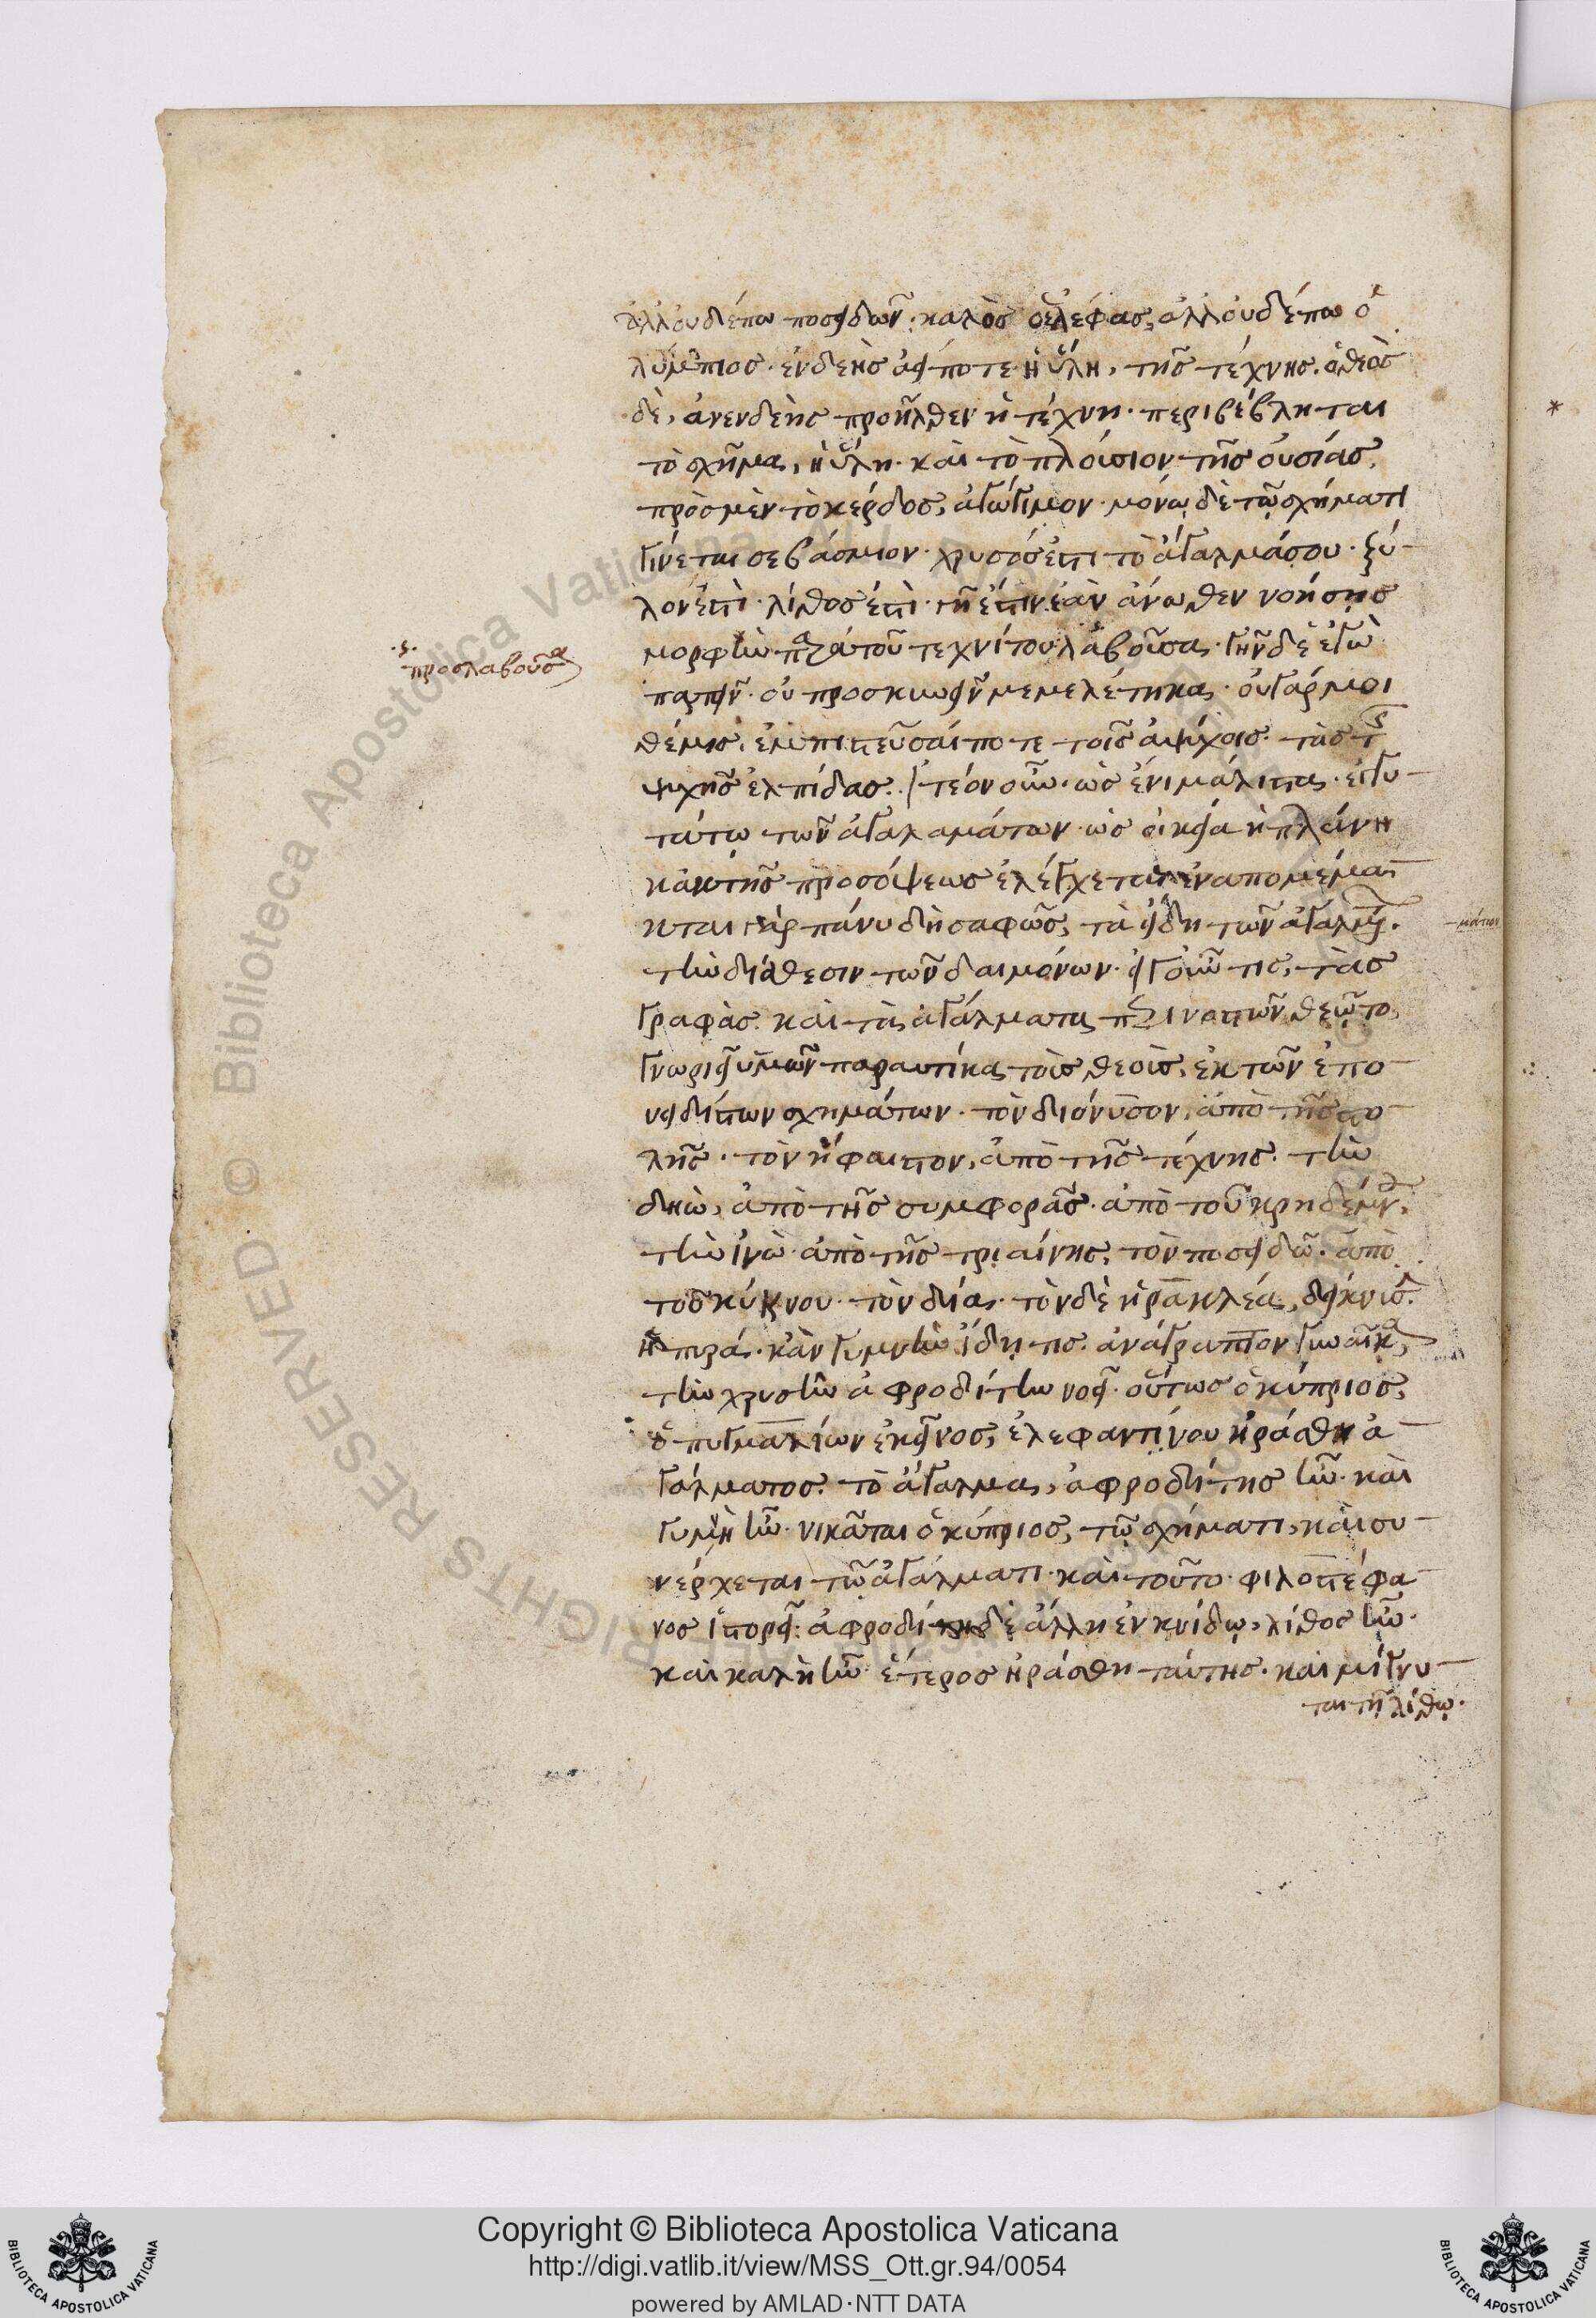 ἀλλ' οὐδέπω ποσειδῶν· καλὸς ὁ ἐλέφας, ἀλλ' οὐδέπω ὀ
λύμπιος· ἐνδεὴς ἀεί ποτε ἡ ὕλη, τῆς τέχνης. ὁ θεὸς
δὲ, ἀνενδεής προῆλθεν ἡ τέχνη· περιβέβληται
τὸ σχῆμα, ἡ ὕλη· καὶ τὸ πλούσιον τῆς οὐσίας,
πρὸς μὲν τὸ κέρδος, ἀγώγιμον· μόνῳ δὲ τῷ σχήματι
γίνεται σεβάσμιον· χρυσός ἐστι τὸ ἄγαλμά σου· ξύ-
λον ἐστὶ· λίθος ἐστὶ· γῆ ἐστιν ἐὰν ἄνωθεν νοήσῃς
μορφὴν παρὰ τοῦ τεχνίτου λαβοῦσα· γῆν δὲ ἐγὼ
·ς·
προσλαβοῦσα
πατεῖν· οὐ προσκυνεῖν μεμελέτηκα· οὐ γάρ μοι
θέμις, ἐμπιστεῦσαί ποτε τοῖς ἀψύχοις· τὰς τῆς
ψυχῆς ἐλπίδας. ἰτέον οὖν· ὡς ἔνι μάλιστα· ἐγγυ-
τάτω τῶν ἀγαλμάτων· ὡς οἰκεία ἡ πλάνη
κἀκ τῆς προσόψεως ἐλέγχεται· ἐναπομέμα-
κται γὰρ πάνυ δὴ σαφῶς, τὰ εἴδη τῶν ἀγαλμάτων.
-μάτων
τὴν διάθεσιν τῶν δαιμόνων· εἰ γοῦν τις, τὰς
γραφὰς· καὶ τὰ ἀγάλματα περινοστῶν θεῷτο,
γνωριεῖ ὑμῶν παραυτίκα τοὺς θεοὺς, ἐκ τῶν ἐπο-
νειδίστων σχημάτων· τὸν διόνυσον, ἀπὸ τῆς στο-
λῆς· τὸν ἥφαιστον, ἀπὸ τῆς τέχνης· τὴν
δηὼ, ἀπὸ τῆς συμφορᾶς· ἀπὸ τοῦ κρηδέμνου,
τὴν ἰνὼ· ἀπὸ τῆς τριαίνης, τὸν ποσειδῶ· ἀπὸ
τοῦ κύκνου· τὸν δία· τὸν δὲ ἡρακλέα, δείκνυσιν
ἡ πυρά· κἂν γυμνὴν ἴδῃ τις· ἀνάγραπτον γυναῖκα,
τὴν χρυσῆν ἀφροδίτην νοεῖ· οὕτως ὁ κύπριος,
ὁ πυγμαλίων ἐκεῖνος, ἐλεφαντίνου ἠράσθη ἀ-
γάλματος· τὸ ἄγαλμα, ἀφροδίτης ἦν· καὶ
γυμνὴ ἦν· νικᾶται ὁ κύπριος, τῷ σχήματι, καὶ συ-
νέρχεται τῷ ἀγάλματι· καὶ τοῦτο· φιλοστέφα-
νος ἱστορεῖ· ἀφροδίτη δὲ ἄλλη ἐν κνίδῳ, λίθος ἦν·
καὶ καλὴ ἦν· ἕτερος ἠράσθη ταύτης· καὶ μίγνυ-
ται τῇ λίθῳ·
Copyright © Biblioteca Apostolica Vaticana
http://digi.vatlib.it/view/MSS_Ott.gr.94/0054
powered by AMLAD·NTT DATA